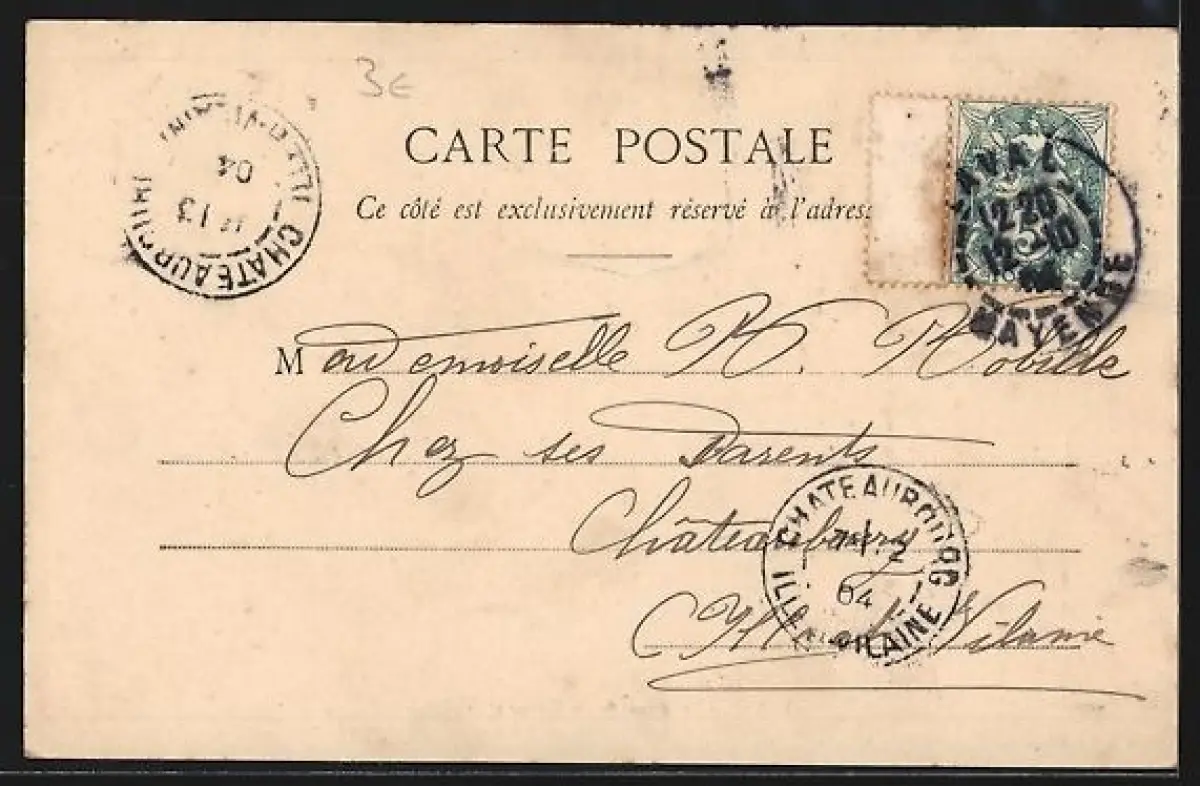 3€
CARTE POSTALE
Ce côté est exclusivement réservé à l'adresse
CHATEAUBOURG
13
04
LAVAL
12 20
MAYENNE
5
Mademoiselle R. Robille
Chez ses Parents
Châteaubourg
Ille et Vilaine
CHATEAUBOURG
04
ILLE VILAINE